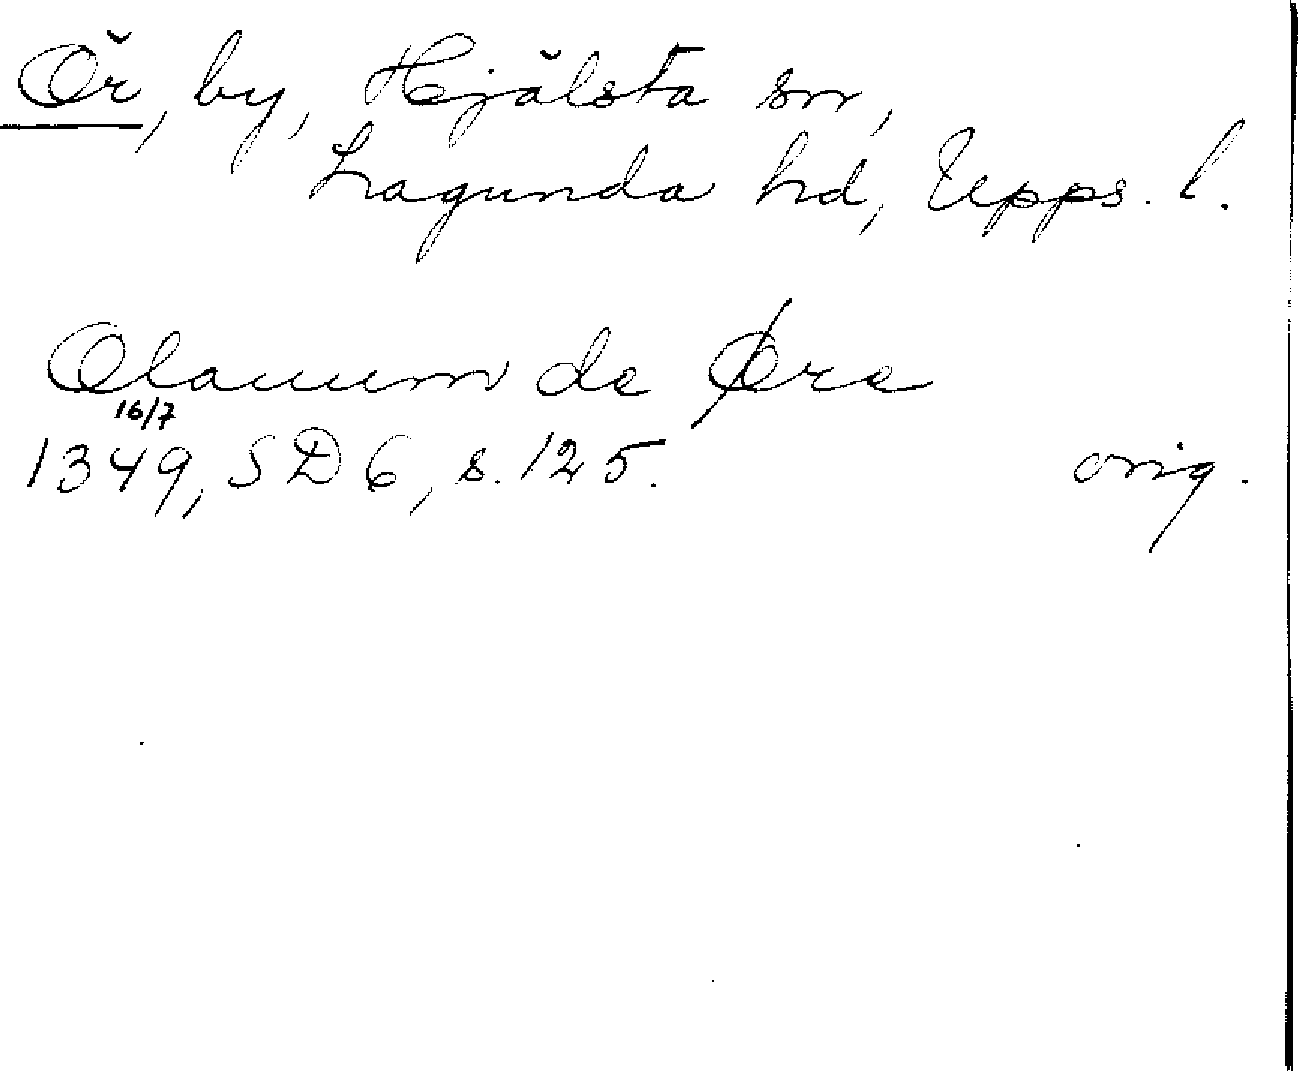 Ör, by, Hjälsta sn,
Lagunda hd, Upps. l.
Olauum de Øre
16/7
1349, SD 6, s. 125. orig.